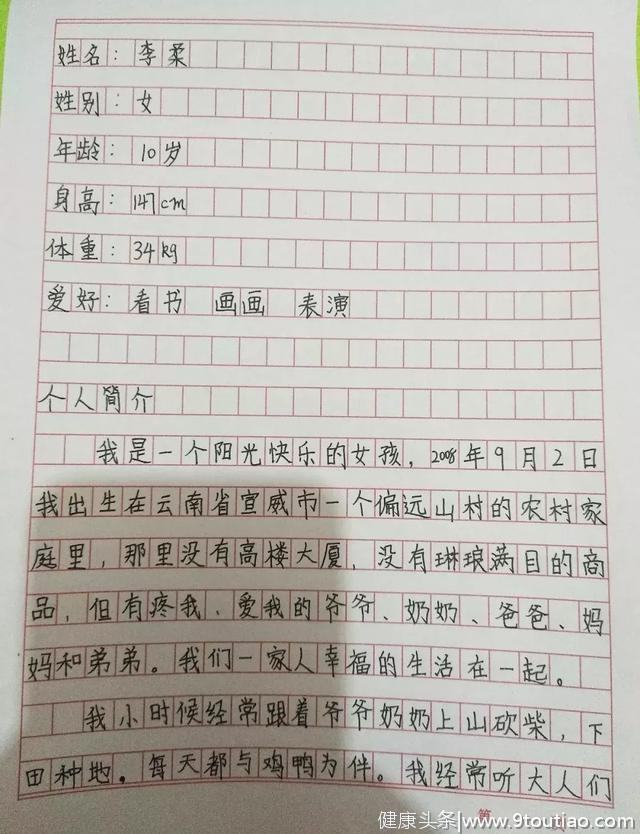 姓名：李柔
姓别：女
年龄：10岁
身高：147cm
体重：34kg
爱好：看书 画画 表演
个人简介
我是一个阳光快乐的女孩，2008年9月2日
我出生在云南省宣威市一个偏远山村的农村家
庭里，那里没有高楼大厦，没有琳琅满目的商
品，但有疼我、爱我的爷爷、奶奶、爸爸、妈
妈和弟弟。我们一家人幸福的生活在一起。
我小时候经常跟着爷爷奶奶上山砍柴，下
田种地。每天都与鸡鸭为伴。我经常听大人们
第
健康头条|www.9toutiao.com